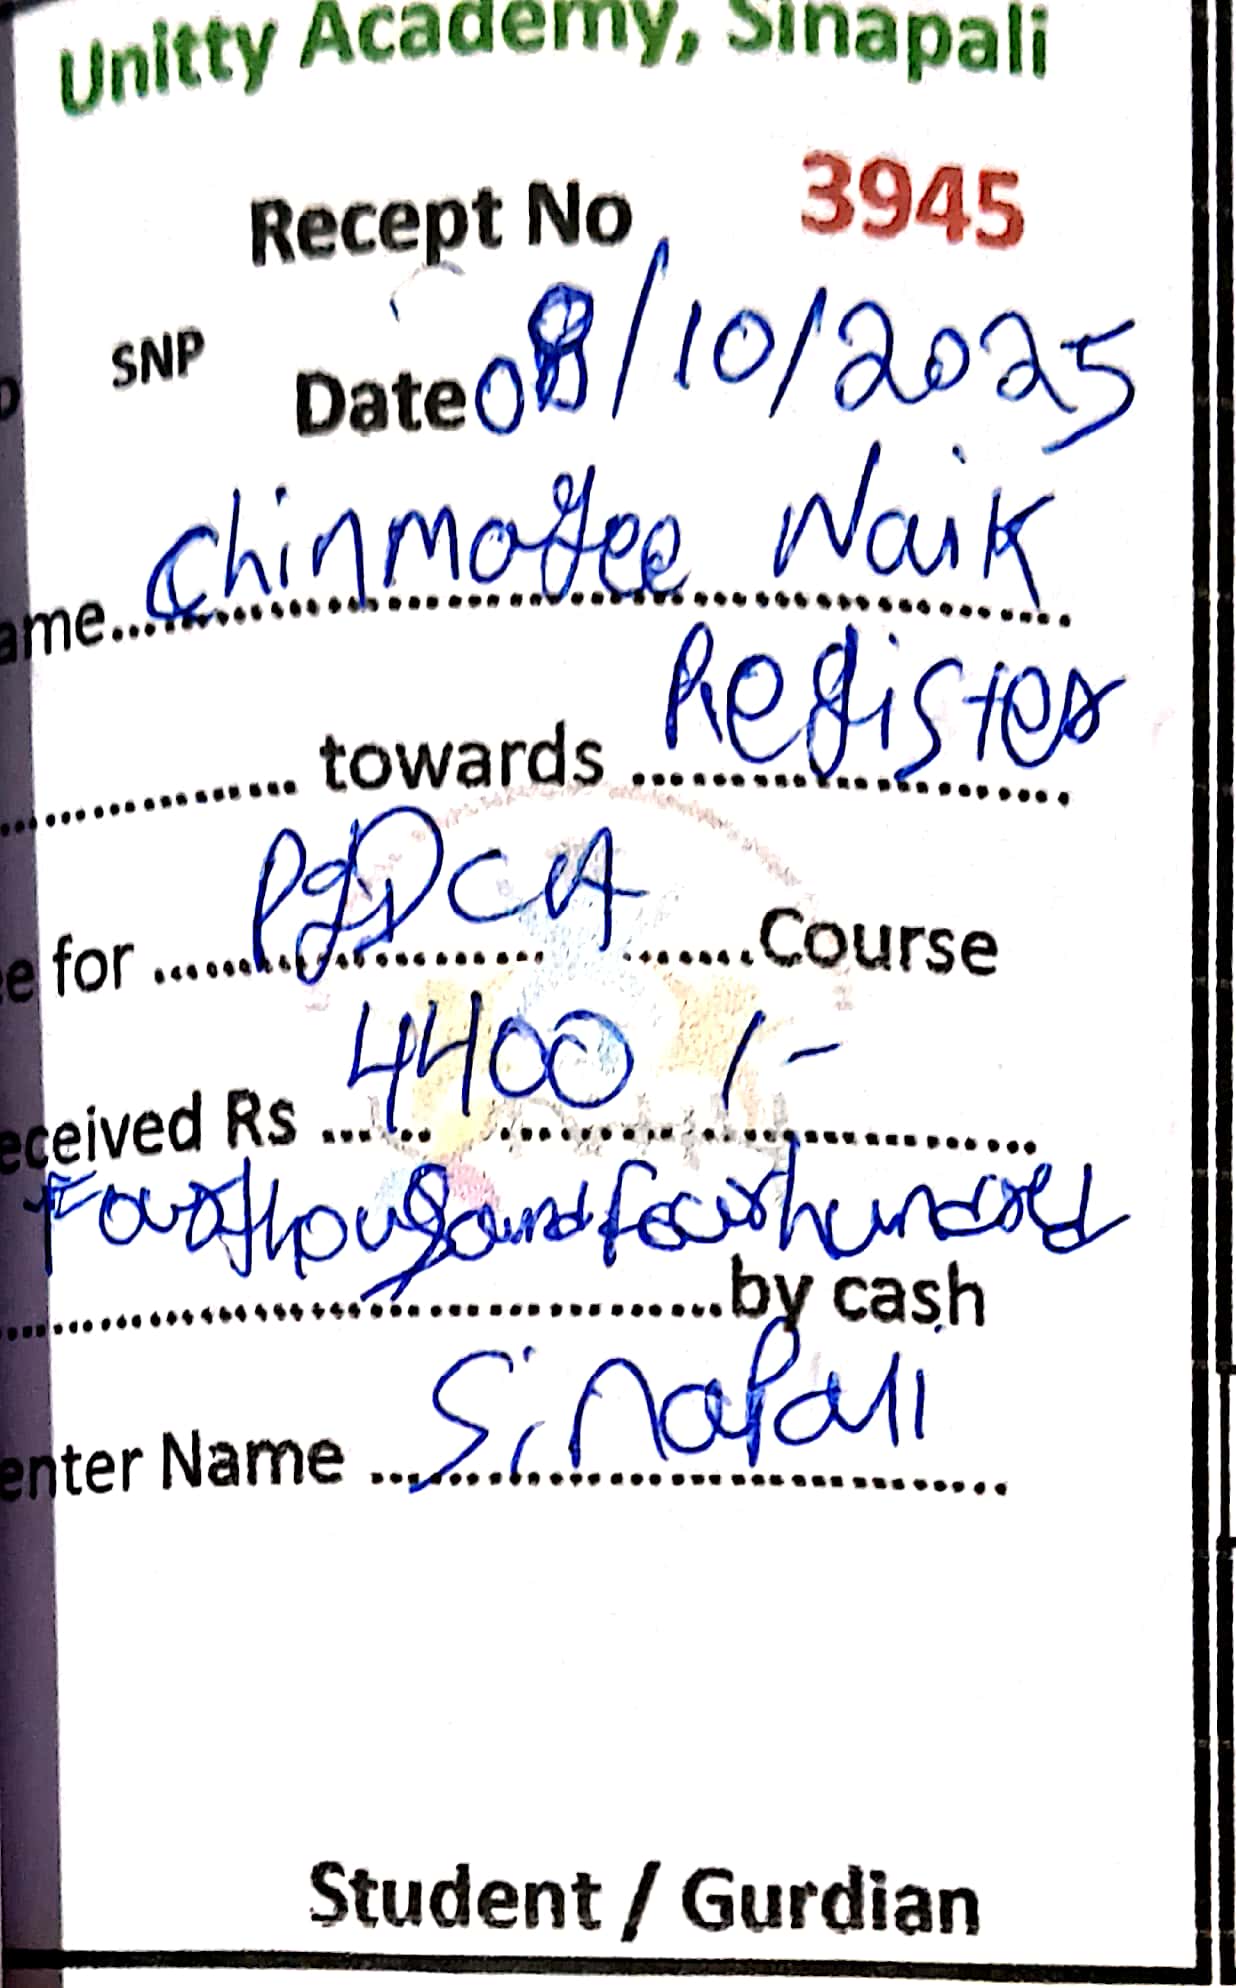 Unitty Academy, Sinapali
Recept No 3945
SNP
Date 08/10/2025
ame.... Chinmayee Naik
............ towards ...... Register
e for ...... PGDCA ......Course
eceived Rs .... 4400 /-
Fourthousand four hundred
............by cash
enter Name .... Sinapali
Student / Gurdian